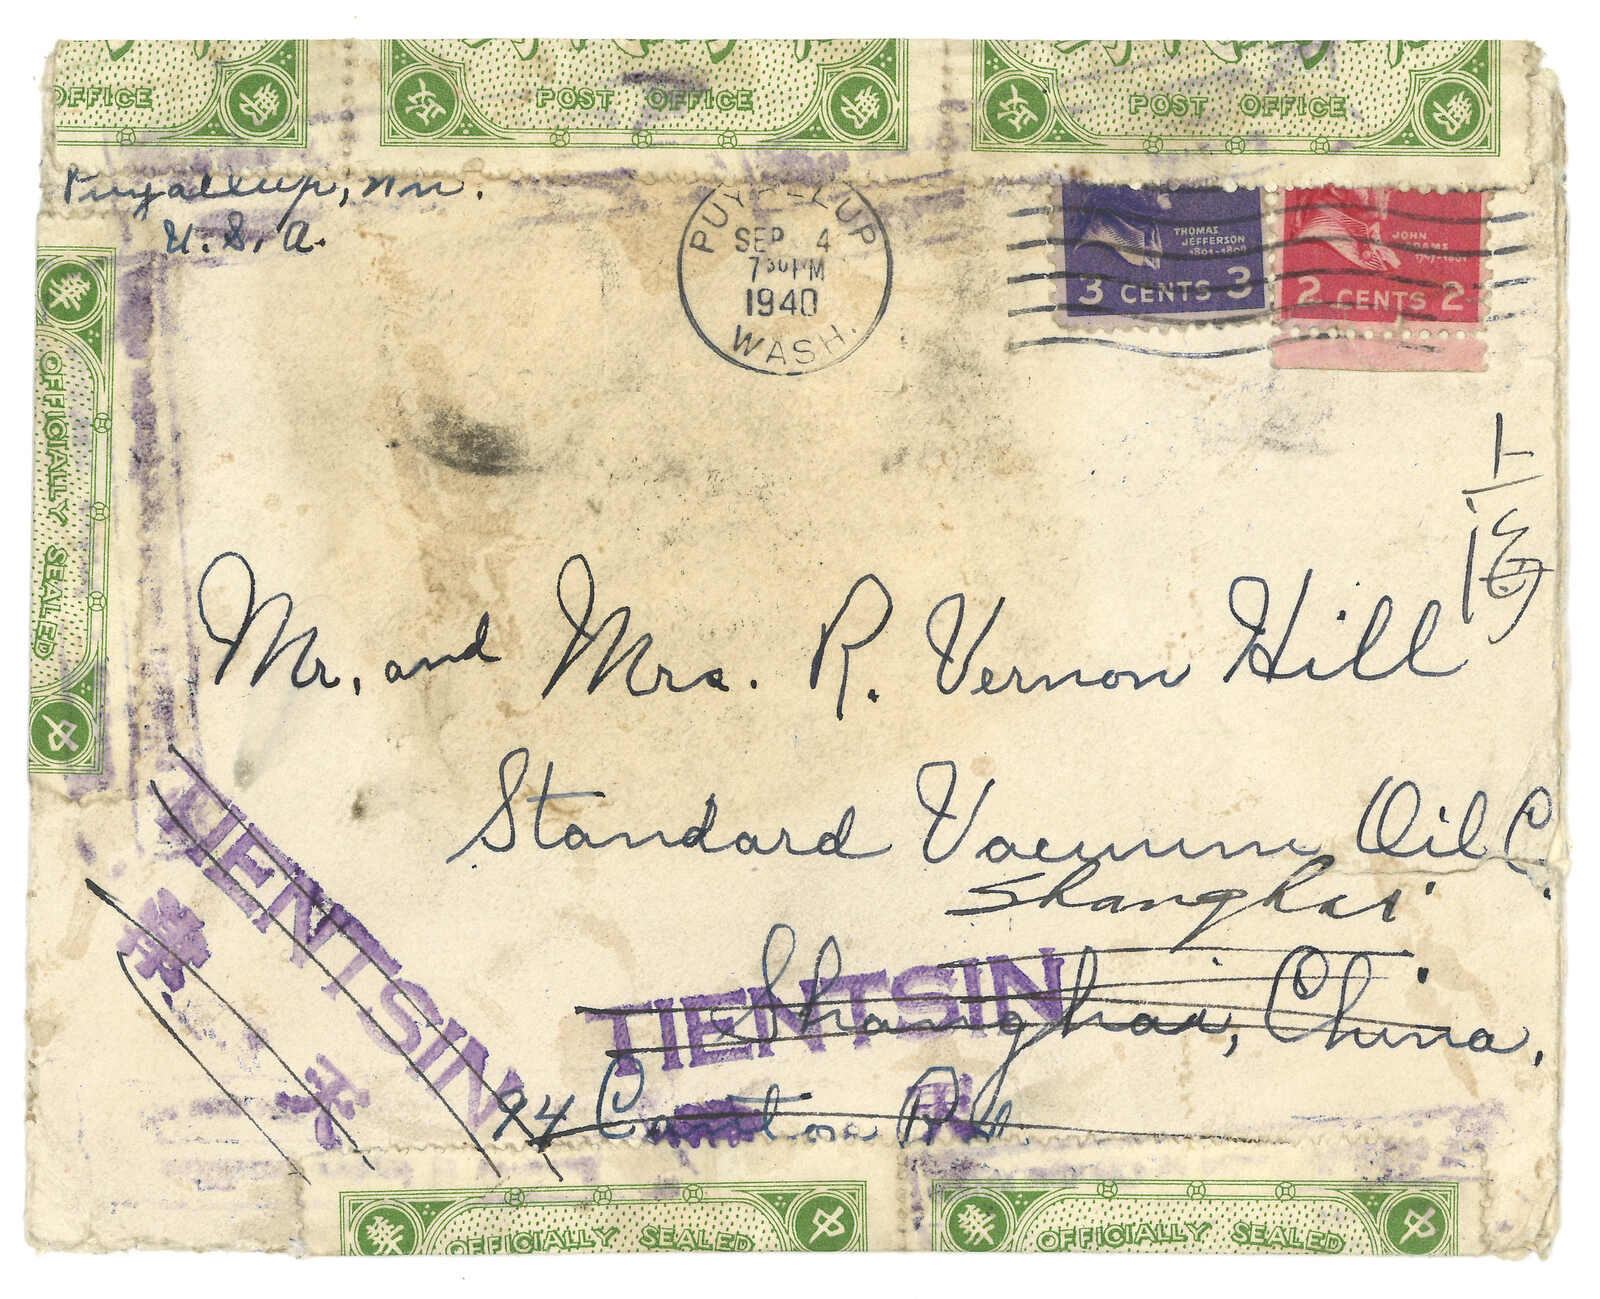 OFFICE
POST OFFICE
POST OFFICE
Puyallup, Wn.
U. S. A.
PUYALLUP
SEP 4
7 30 PM
1940
WASH.
THOMAS
JEFFERSON
1801-1809
3 CENTS 3
JOHN
ADAMS
1797-1801
2 CENTS 2
OFFICIALLY SEALED
Mr. and Mrs. R. Vernon Hill
Standard Vacuum Oil C.
Shanghai
Shanghai, China.
TIENTSIN
TIENTSIN
94 Canton Rd.
OFFICIALLY SEALED
OFFICIALLY SEALED